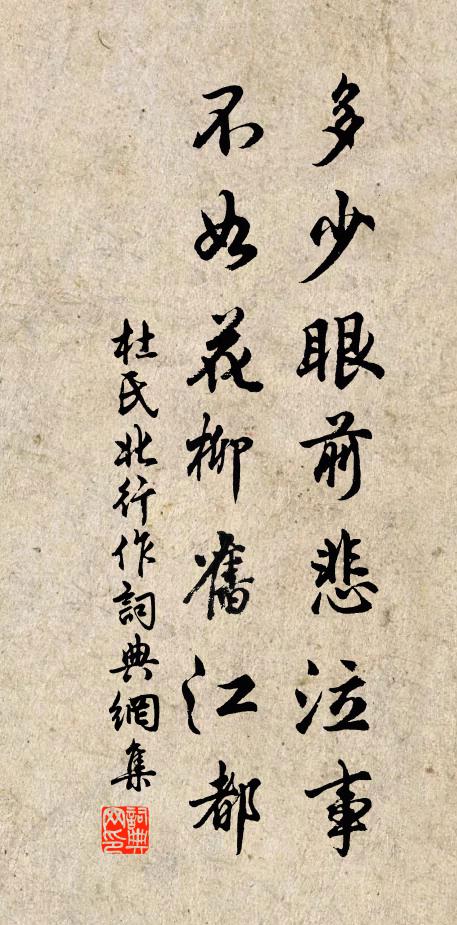 多少眼前悲泣事
不如花柳舊江都
杜氏北行作詞典網集
詞典網印